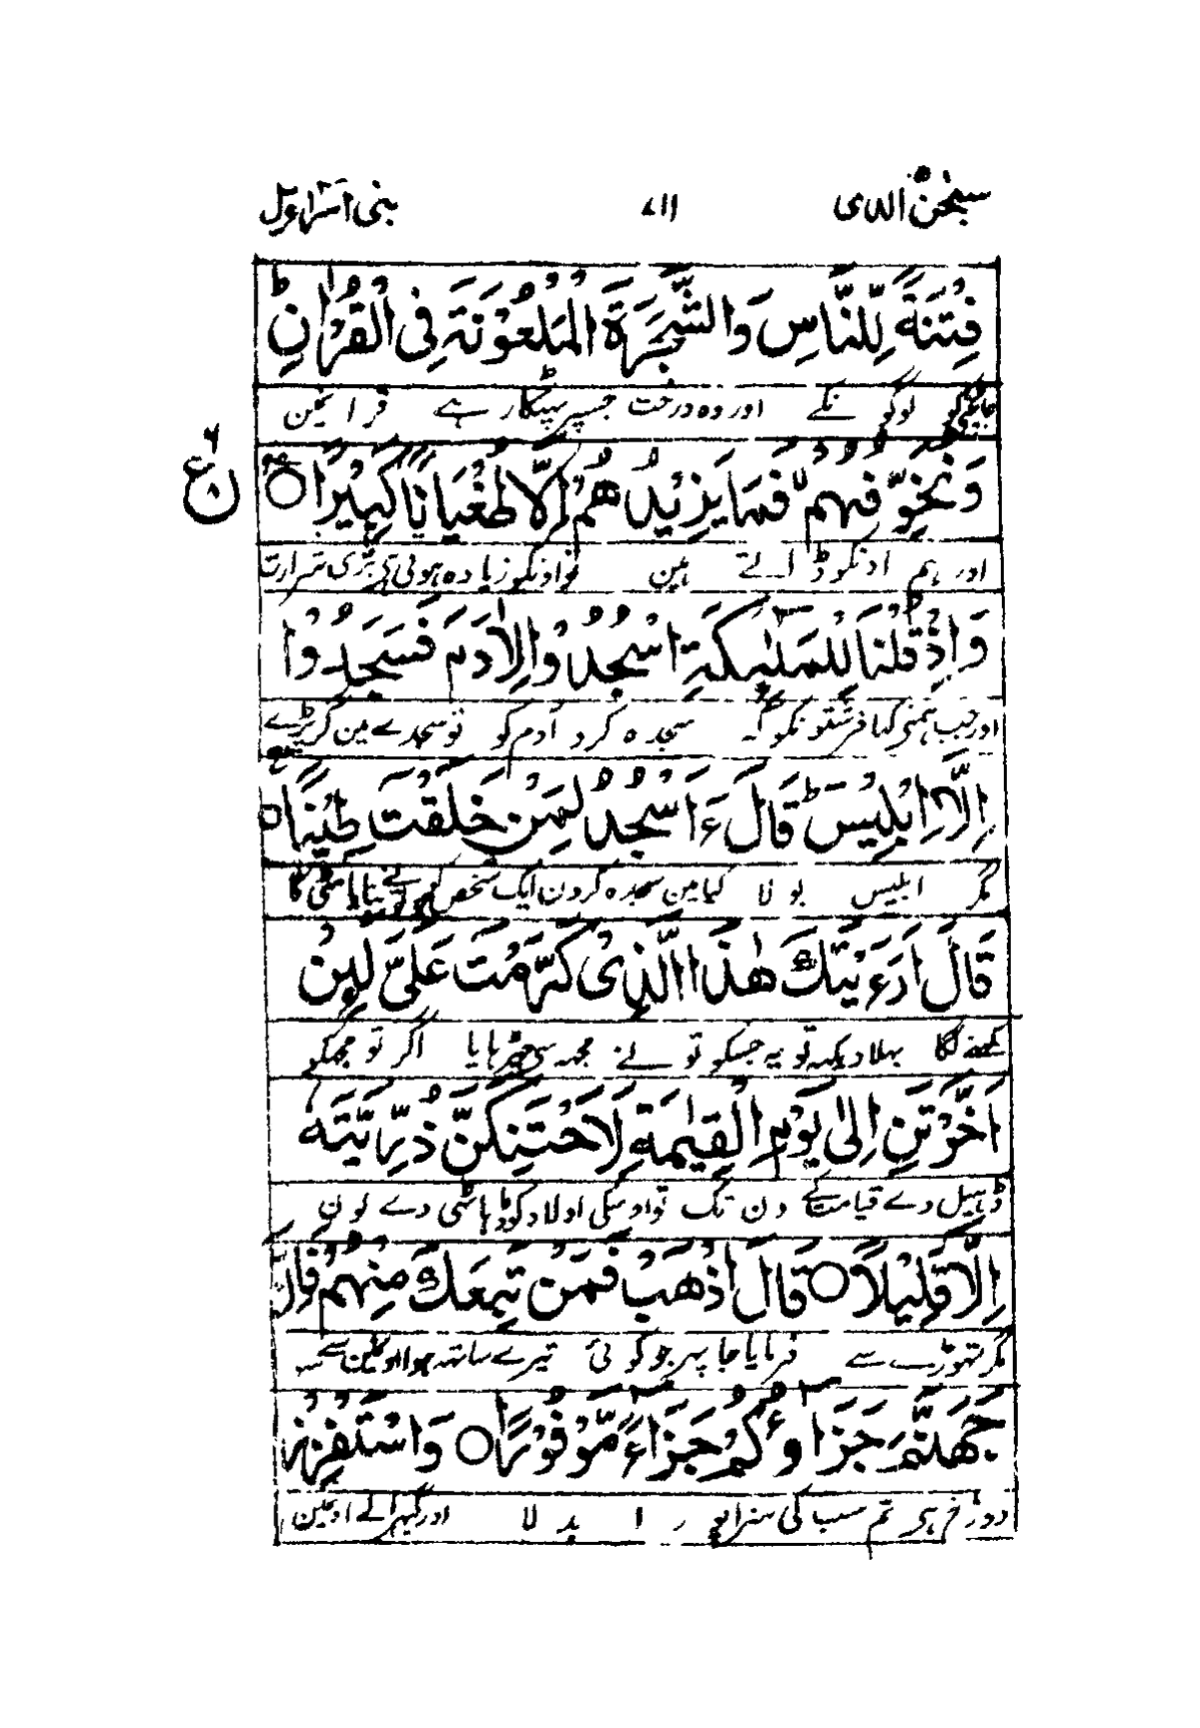 سبحٰن الذی ۷۱۱ بنی اسرآءیل
فِتْنَةً لِّلنَّاسِ وَالشَّجَرَةَ الْمَلْعُوْنَةَ فِی الْقُرْاٰنِ ؕ
جانچنے کو لوگو نکے اور وہ درخت جسپر پھٹکار ہے قرانمین
وَنُخَوِّفُهُمْ ۙ فَمَا یَزِیْدُهُمْ اِلَّا طُغْیَانًا كَبِیْرًا ○
اور ہم اونکو ڈراتے ہین تو اونکو زیادہ ہوتی ہے بڑی شرارت
ع
وَاِذْ قُلْنَا لِلْمَلٰٓئِكَةِ اسْجُدُوْا لِاٰدَمَ فَسَجَدُوْۤا
اور جب ہمنے کہا فرشتونکو کہ سجدہ کرو آدم کو تو سجدے مین گر پڑے
اِلَّاۤ اِبْلِیْسَ ؕ قَالَ ءَاَسْجُدُ لِمَنْ خَلَقْتَ طِیْنًا ○
مگر ابلیس بولا کیا مین سجدہ کرون ایک شخص کو جو تونے بنایا مٹی کا
قَالَ اَرَءَیْتَكَ هٰذَا الَّذِیْ كَرَّمْتَ عَلَیَّ لَئِنْ
کہنے لگا بہلا دیکہہ تو یہ جسکو تو نے مجہہ سے چڑہایا اگر تو مجھکو
اَخَّرْتَنِ اِلٰی یَوْمِ الْقِیٰمَةِ لَاَحْتَنِكَنَّ ذُرِّیَّتَهٗۤ
ڈہیل دے قیامتکے دن تک تو اوسکی اولاد کو ڈہانٹی دے لون
اِلَّا قَلِیْلًا ○ قَالَ اذْهَبْ فَمَنْ تَبِعَكَ مِنْهُمْ فَاِنَّ
مگر تہوڑے سے فرمایا جا پہر جو کوئی تیرے ساتہہ ہوا اونمین سے
جَهَنَّمَ جَزَآؤُكُمْ جَزَآءً مَّوْفُوْرًا ○ وَاسْتَفْزِزْ
دوزخ ہی تم سب کی سزا پورا بدلا اور گہبرا لے اونمین